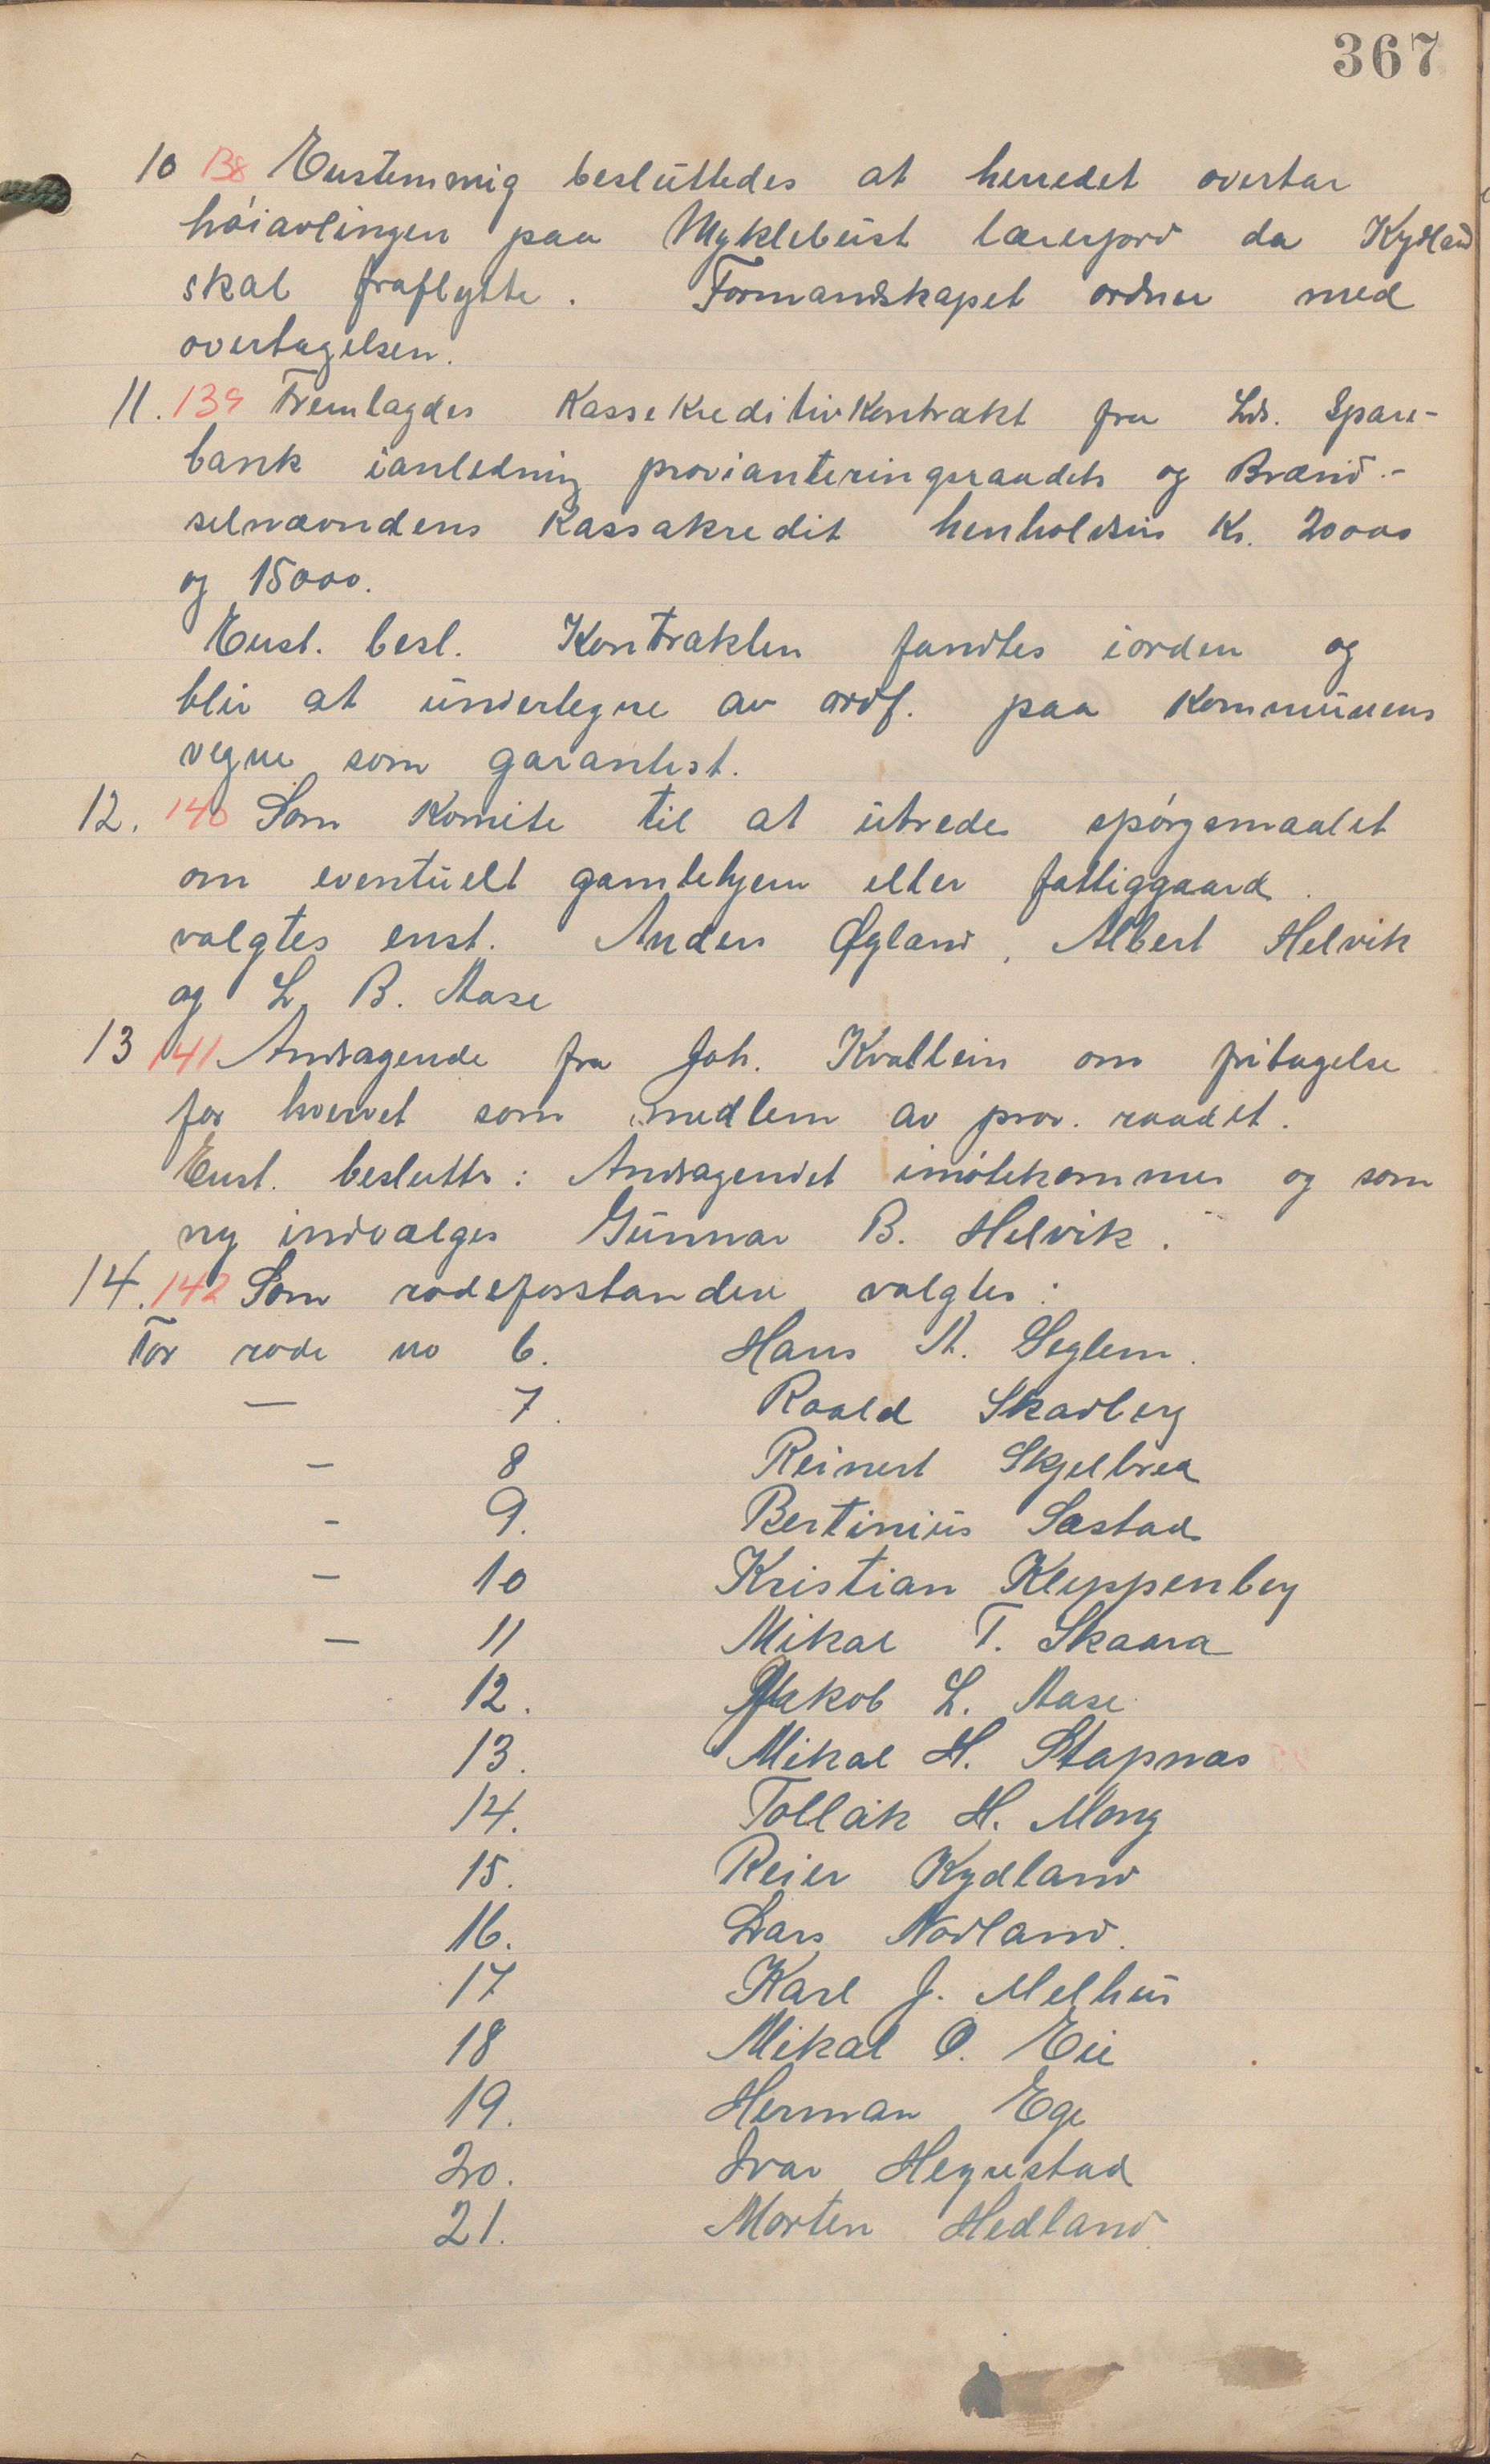 367
10 138 Enstemmig besluttedes at herredet overtar
høiavlingen paa Myklebust lærerjord da Kydland
skal fraflytte. Formandskapet ordner med
overtagelsen.
11. 139 Fremlagdes Kassekreditivkontrakt fra Lds. Spare-
bank ianledning provianteringsraadets og Brænd-
selnævndens Kassakredit henholdsvis Kr. 20000
og 15000.
Enst. besl. Kontrakten fandtes iorden og
blir at undertegne av ordf. paa Kommunens
vegne som garantist.
12. 140 Som Komite til at utrede spørgsmaalet
om eventuelt gamlehjem eller fattiggaard
valgtes enst. Anders Øgland, Albert Helvik
og L. B. Aase
13 141 Andragende fra Joh. Kvallein om fritagelse
for hvervet som medlem av prov. raadet.
Enst. beslutts: Andragendet imøtekommes og som
ny indvælges Gunnar B. Helvik.
14. 142 Som rodeforstandere valgtes:
For rode no 6. Hans A. Seglem.
— 7. Roald Skadberg
– 8 Reinert Skjelbred
- 9. Bertinius Sæstad
– 10 Kristian Kleppenberg
— 11 Mikal T. Skaara
12. Jakob L. Aase
13. Mikal H. Stapnæs
14. Tollak H. Mong
15. Reier Kydland
16. Lars Nodland.
17 Karl J. Melhus
18 Mikal O. Eie
19. Herman Ege
20. Ivar Hegrestad
21. Morten Hedland.